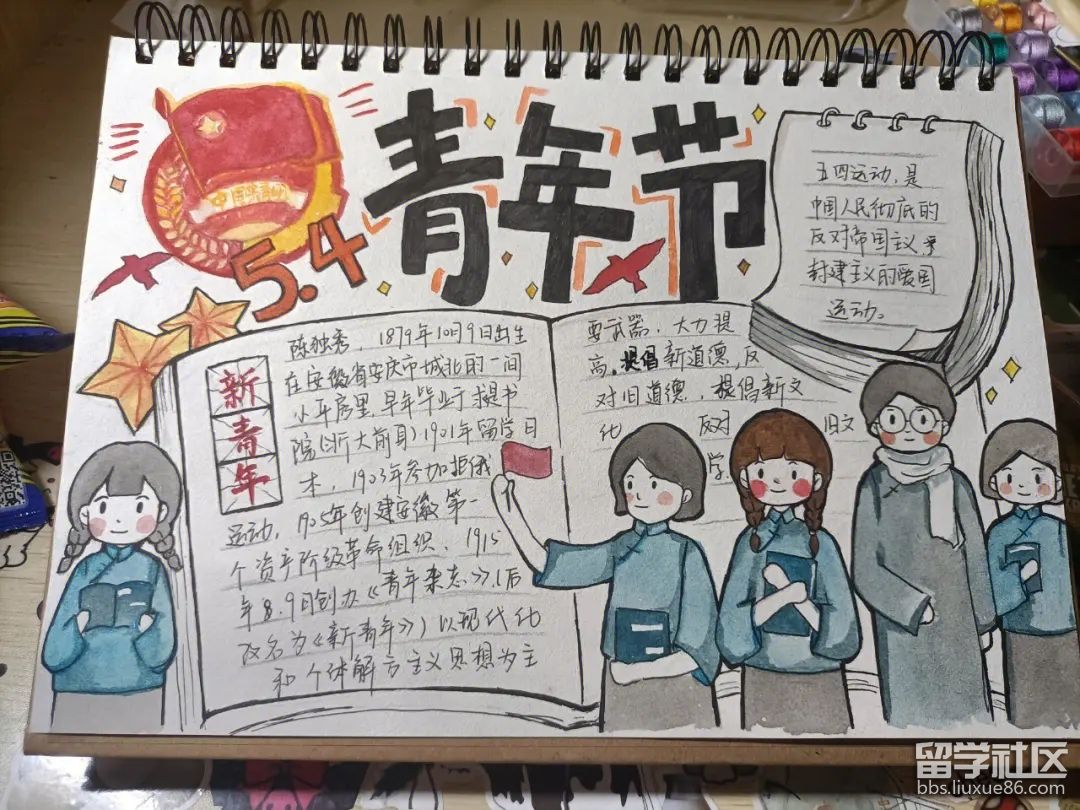 青年节
5.4
五四运动,是
中国人民彻底的
反对帝国主义
封建主义的爱国
运动。
新
青
年
陈独秀,1879年10月9日出生
在安徽省安庆市城北的一间
小平房里,早年毕业于求是书
院(浙大前身)1901年留学日
本,1903年参加拒俄
运动,1905年创建安徽第一
个资产阶级革命组织、1915
年8.9日创办《青年杂志》,(后
改名为《新青年》)以现代化
和个体解方主义思想为主
要武器,大力提
高,提倡新道德,反
对旧道德,提倡新文
化 反对 旧文
学
留学社区
bbs.liuxue86.com